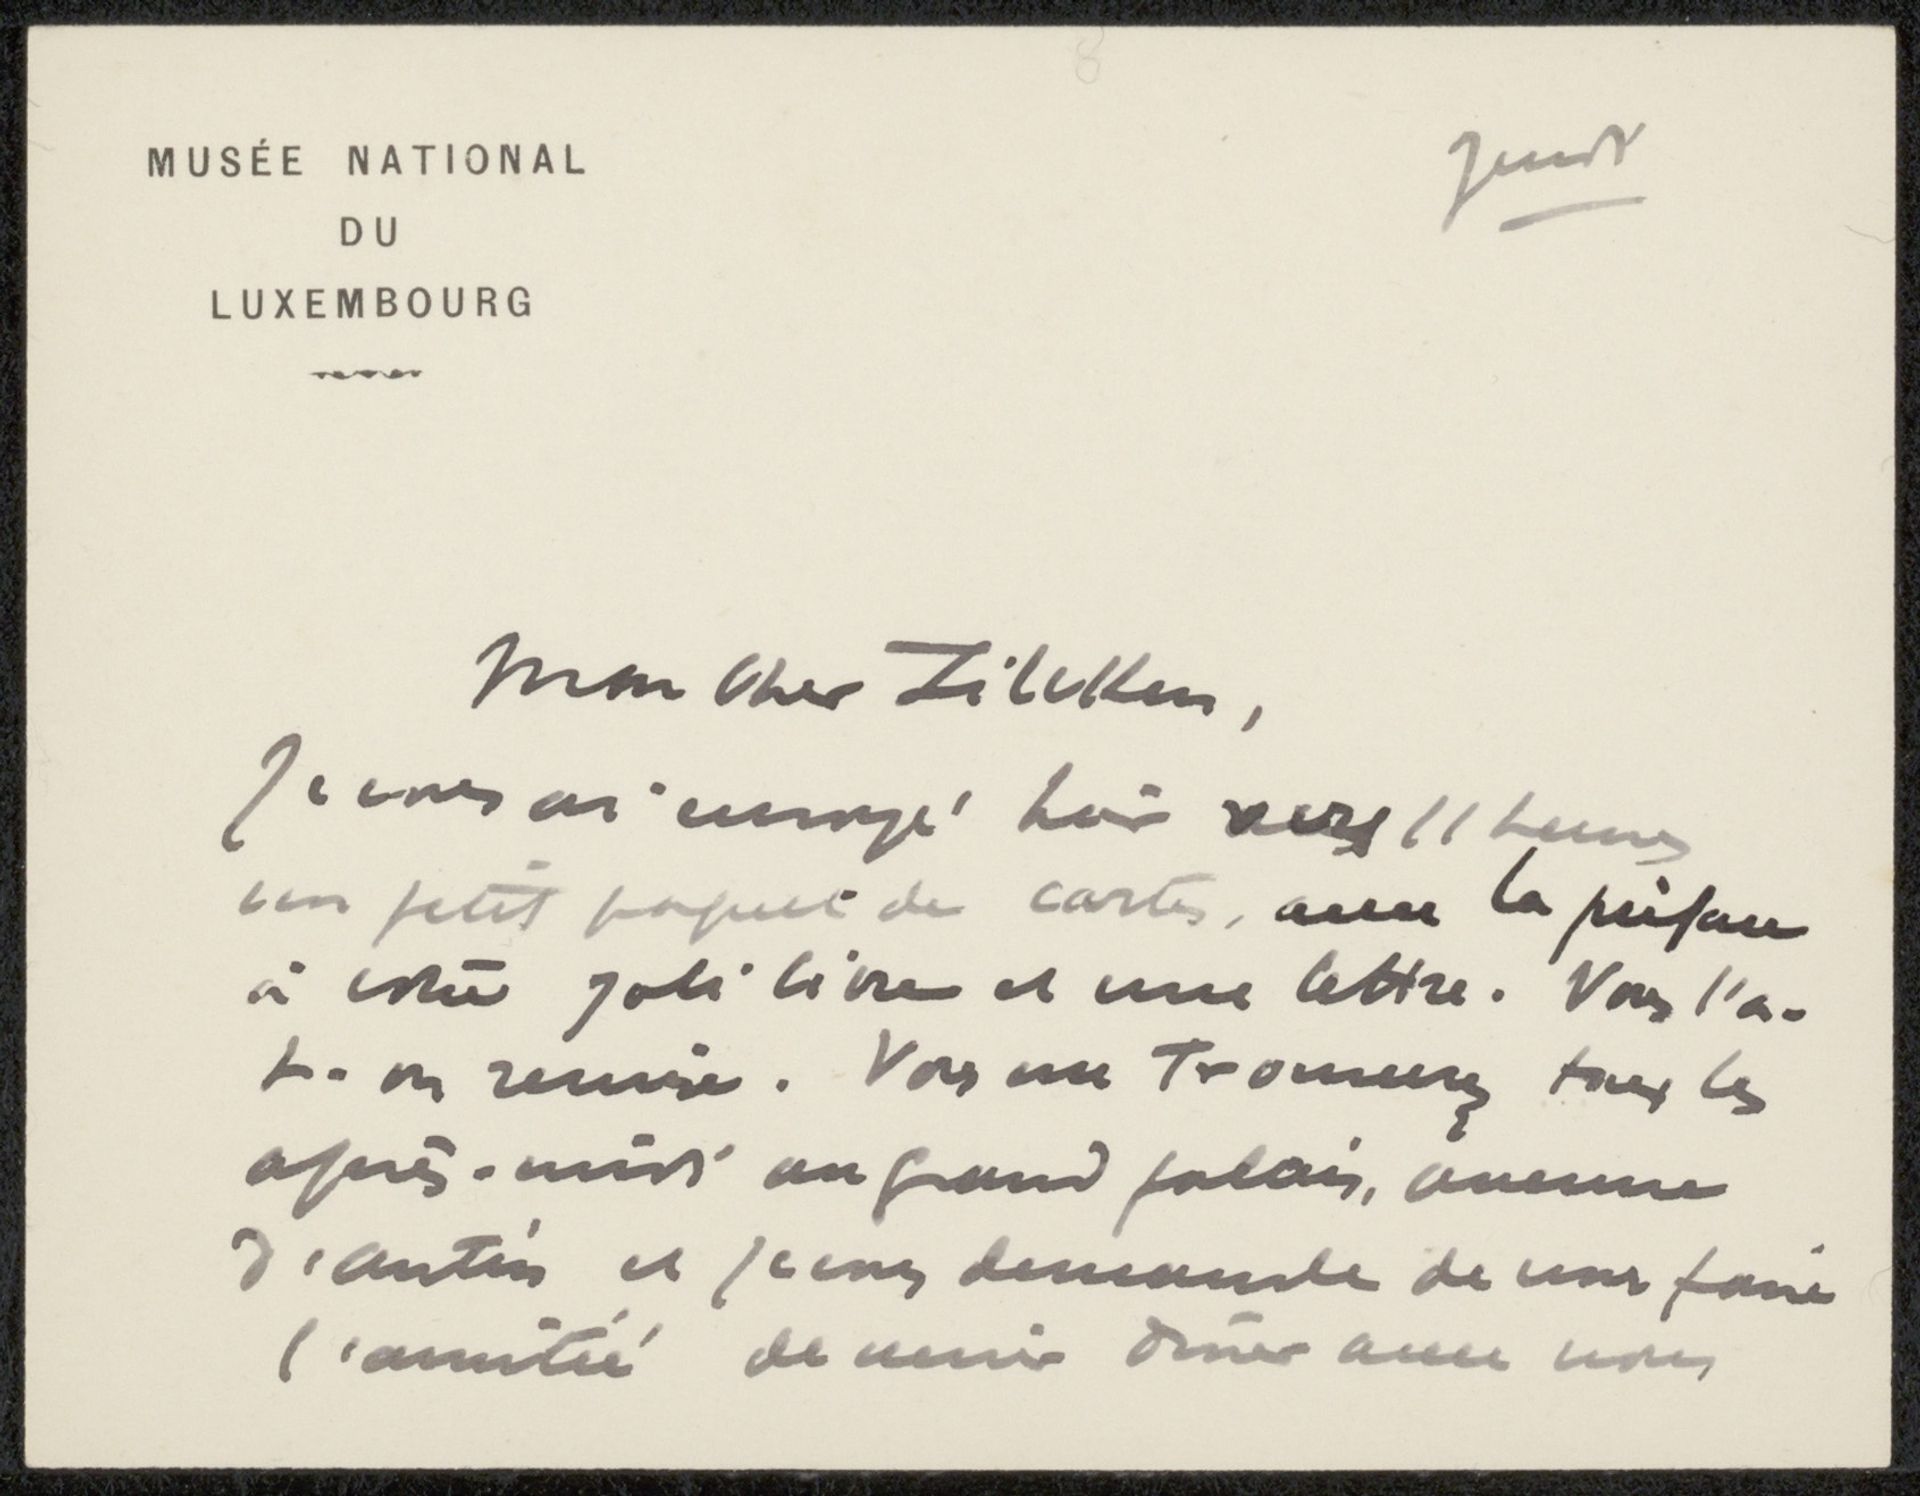 MUSÉE NATIONAL
DU
LUXEMBOURG
Jeudi
Mon cher Zilcken,
Je vous ai envoyé hier vers 11 heures
un petit paquet de cartes, avec la préface
à votre joli livre et une lettre. Vous l'a-
t-on remise. Vous me trouverez tous les
après-midi au grand palais, avenue
d'Antin et je vous demande de nous faire
l'amitié de venir dîner avec nous